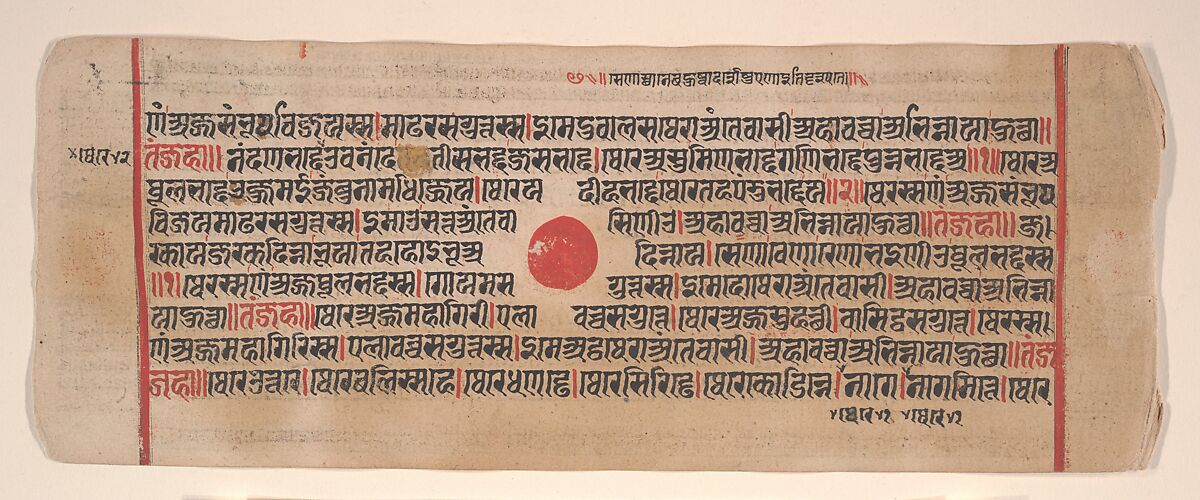 णं अज्जसंभूयविजयस्स।माढरसगुत्तस्स।इमे दुवालस थेरा अंतेवासी अहावच्चा अभिन्नाया हुत्था॥
तंजहा॥नंदणभद्दे उवनंद तीसभद्द जसभद्दे।थेरे अ सुमिणभद्दे गणिभद्दे पुन्नभद्दे अ॥१॥थेरे अ
थूलभद्दे उज्जुमई जंबुनामधिज्जे य।थेरे य दीहभद्दे थेरे तह पंडुभद्दे य॥२॥थेरस्स णं अज्जसंभूय
विजयमाढरसगुत्तस्स।इमाउ सत्त अंतेवासिणीउ।अहावच्चा अभिन्नाया हुत्था॥तंजहा॥ज।
क्खा य जक्खदिन्ना भूया तह होइ भूअदिन्ना य।सेणा वेणा रेणा भइणीउ थूलभद्दस्स
॥१॥थेरस्स णं अज्जथूलभद्दस्स।गोयमसगुत्तस्स।इमे दो थेरा अंतेवासी।अहावच्चा अभिन्ना
या हुत्था॥तंजहा॥थेरे अज्जमहागिरी।एलावच्चसगुत्ते।थेरे अज्जसुहत्थी।वासिट्ठसगुत्ते।थेरस्स।
णं अज्जमहागिरिस्स।एलावच्चसगुत्तस्स।इमे अट्ठ थेरा अंतेवासी।अहावच्चा अभिन्नाया हुत्था॥तंज
जहा॥थेरे उत्तरे।थेरे बलिस्सहे।थेरे धणड्ढे।थेरे सिरिड्ढे।थेरे कोडिन्ने।नागे।नागमित्ते।थेरे